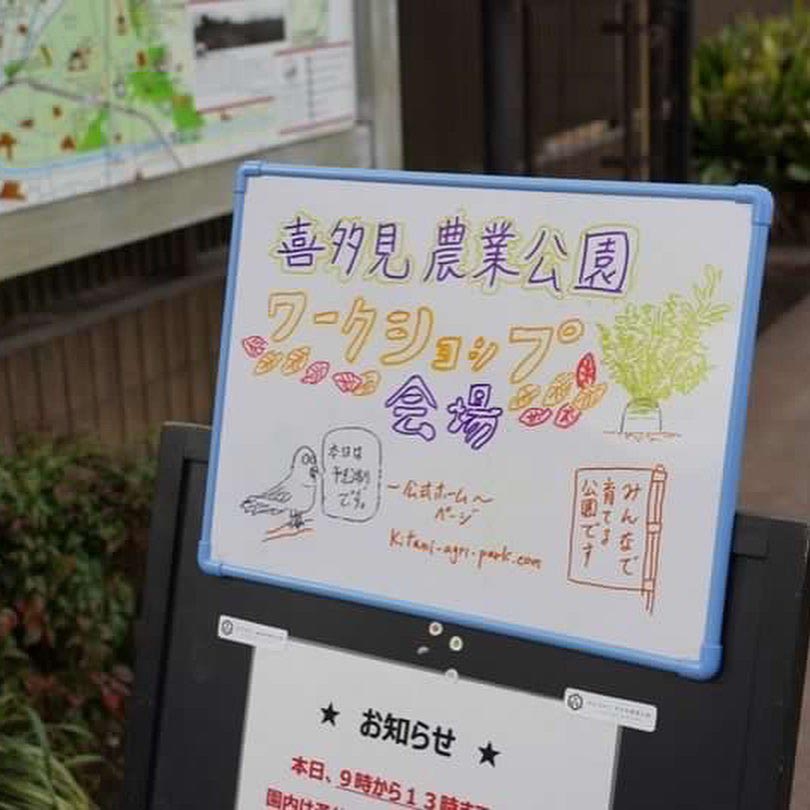 喜多見農業公園
ワークショップ
会場
本日は
予約制
です。
〜公式ホーム〜
ページ
kitami-agri-park.com
みんなで
育てる
公園です
★ お知らせ ★
本日、9時から13時まで
園内は